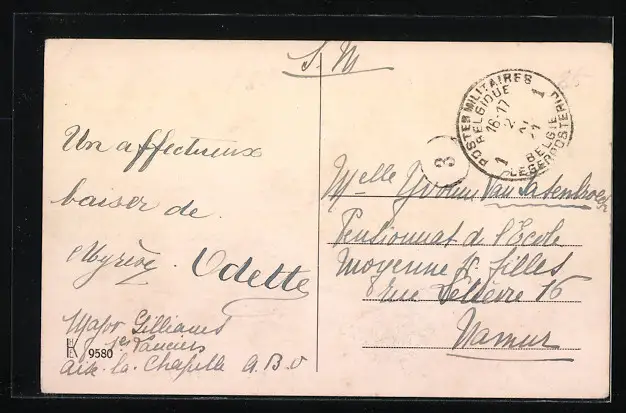 S. M
POSTES MILITAIRES
BELGIQUE
16-17
1
1
BELGIE
LEGERPOSTERIJ
3
Un affectueux
baiser de
Odette
Major Gilliaux
1er Lanciers
Aix-la-Chapelle A.B.O
9580
Melle Yvonne Van
Pensionnat d l'Ecole
Moyenne p. filles
rue Lelièvre 15
Namur